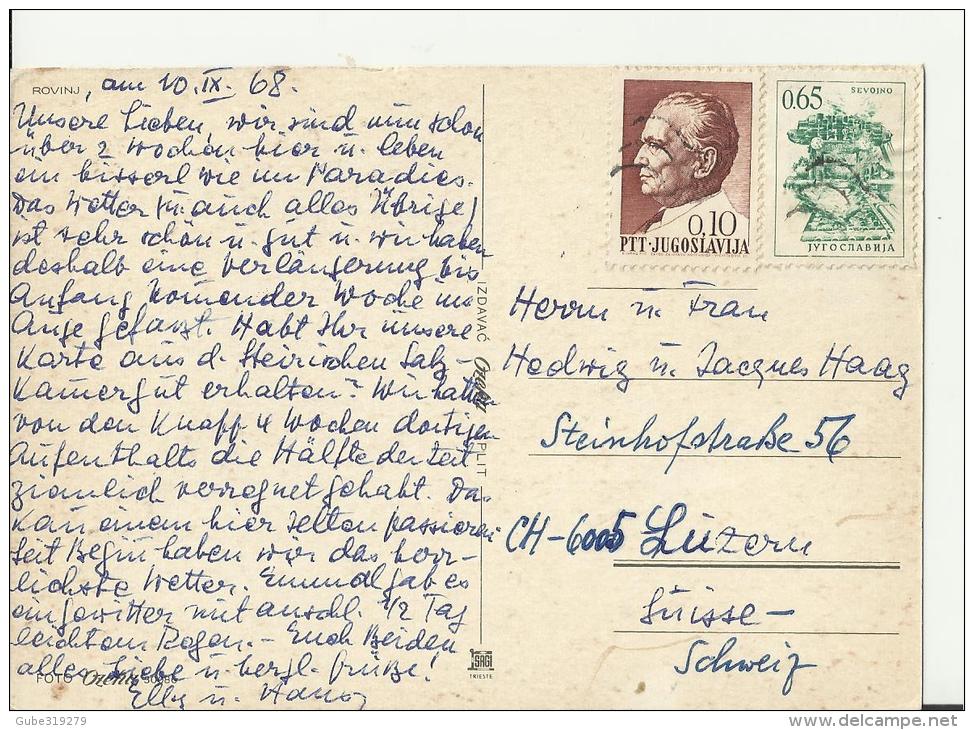 ROVINJ, am 10.IX.68.
Unsere Lieben, wir sind nun schon
über 2 Wochen hier u. leben
ein bisserl wie im Paradies.
Das Wetter (u. auch alles Übrige)
ist sehr schön u. gut u. wir haben
deshalb eine Verlängerung bis
Anfang komender Woche ins
Auge gefasst. Habt Ihr unsere
Karte aus d. Steirischen Salz-
kamergut erhalten? Wir hatten
von den knapp 4 Wochen dortigen
Aufenthalts die Hälfte der Zeit
ziemlich verregnet gehabt. Da-
kan einem hier selten passieren
Seit Begin haben wir das herr-
lichste Wetter. Einmal gab es
ein Gewitter mit anschl. 1/2 Tag
leichtem Regen.- Euch Beiden
alles Liebe u. herzl. Grüße!
Elly u. Hans
FOTO 50986
IZDAVAČ SPLIT
SAGI
TRIESTE
0.10
PTT·JUGOSLAVIJA
0.65 SEVOJNO
ЈУГОСЛАВИЈА
Herrn u. Frau
Hedwig u. Jacques Haag
Steinhofstraße 56
CH-6005 Luzern
Suisse-
Schweiz
Gube319279
delcampe.net